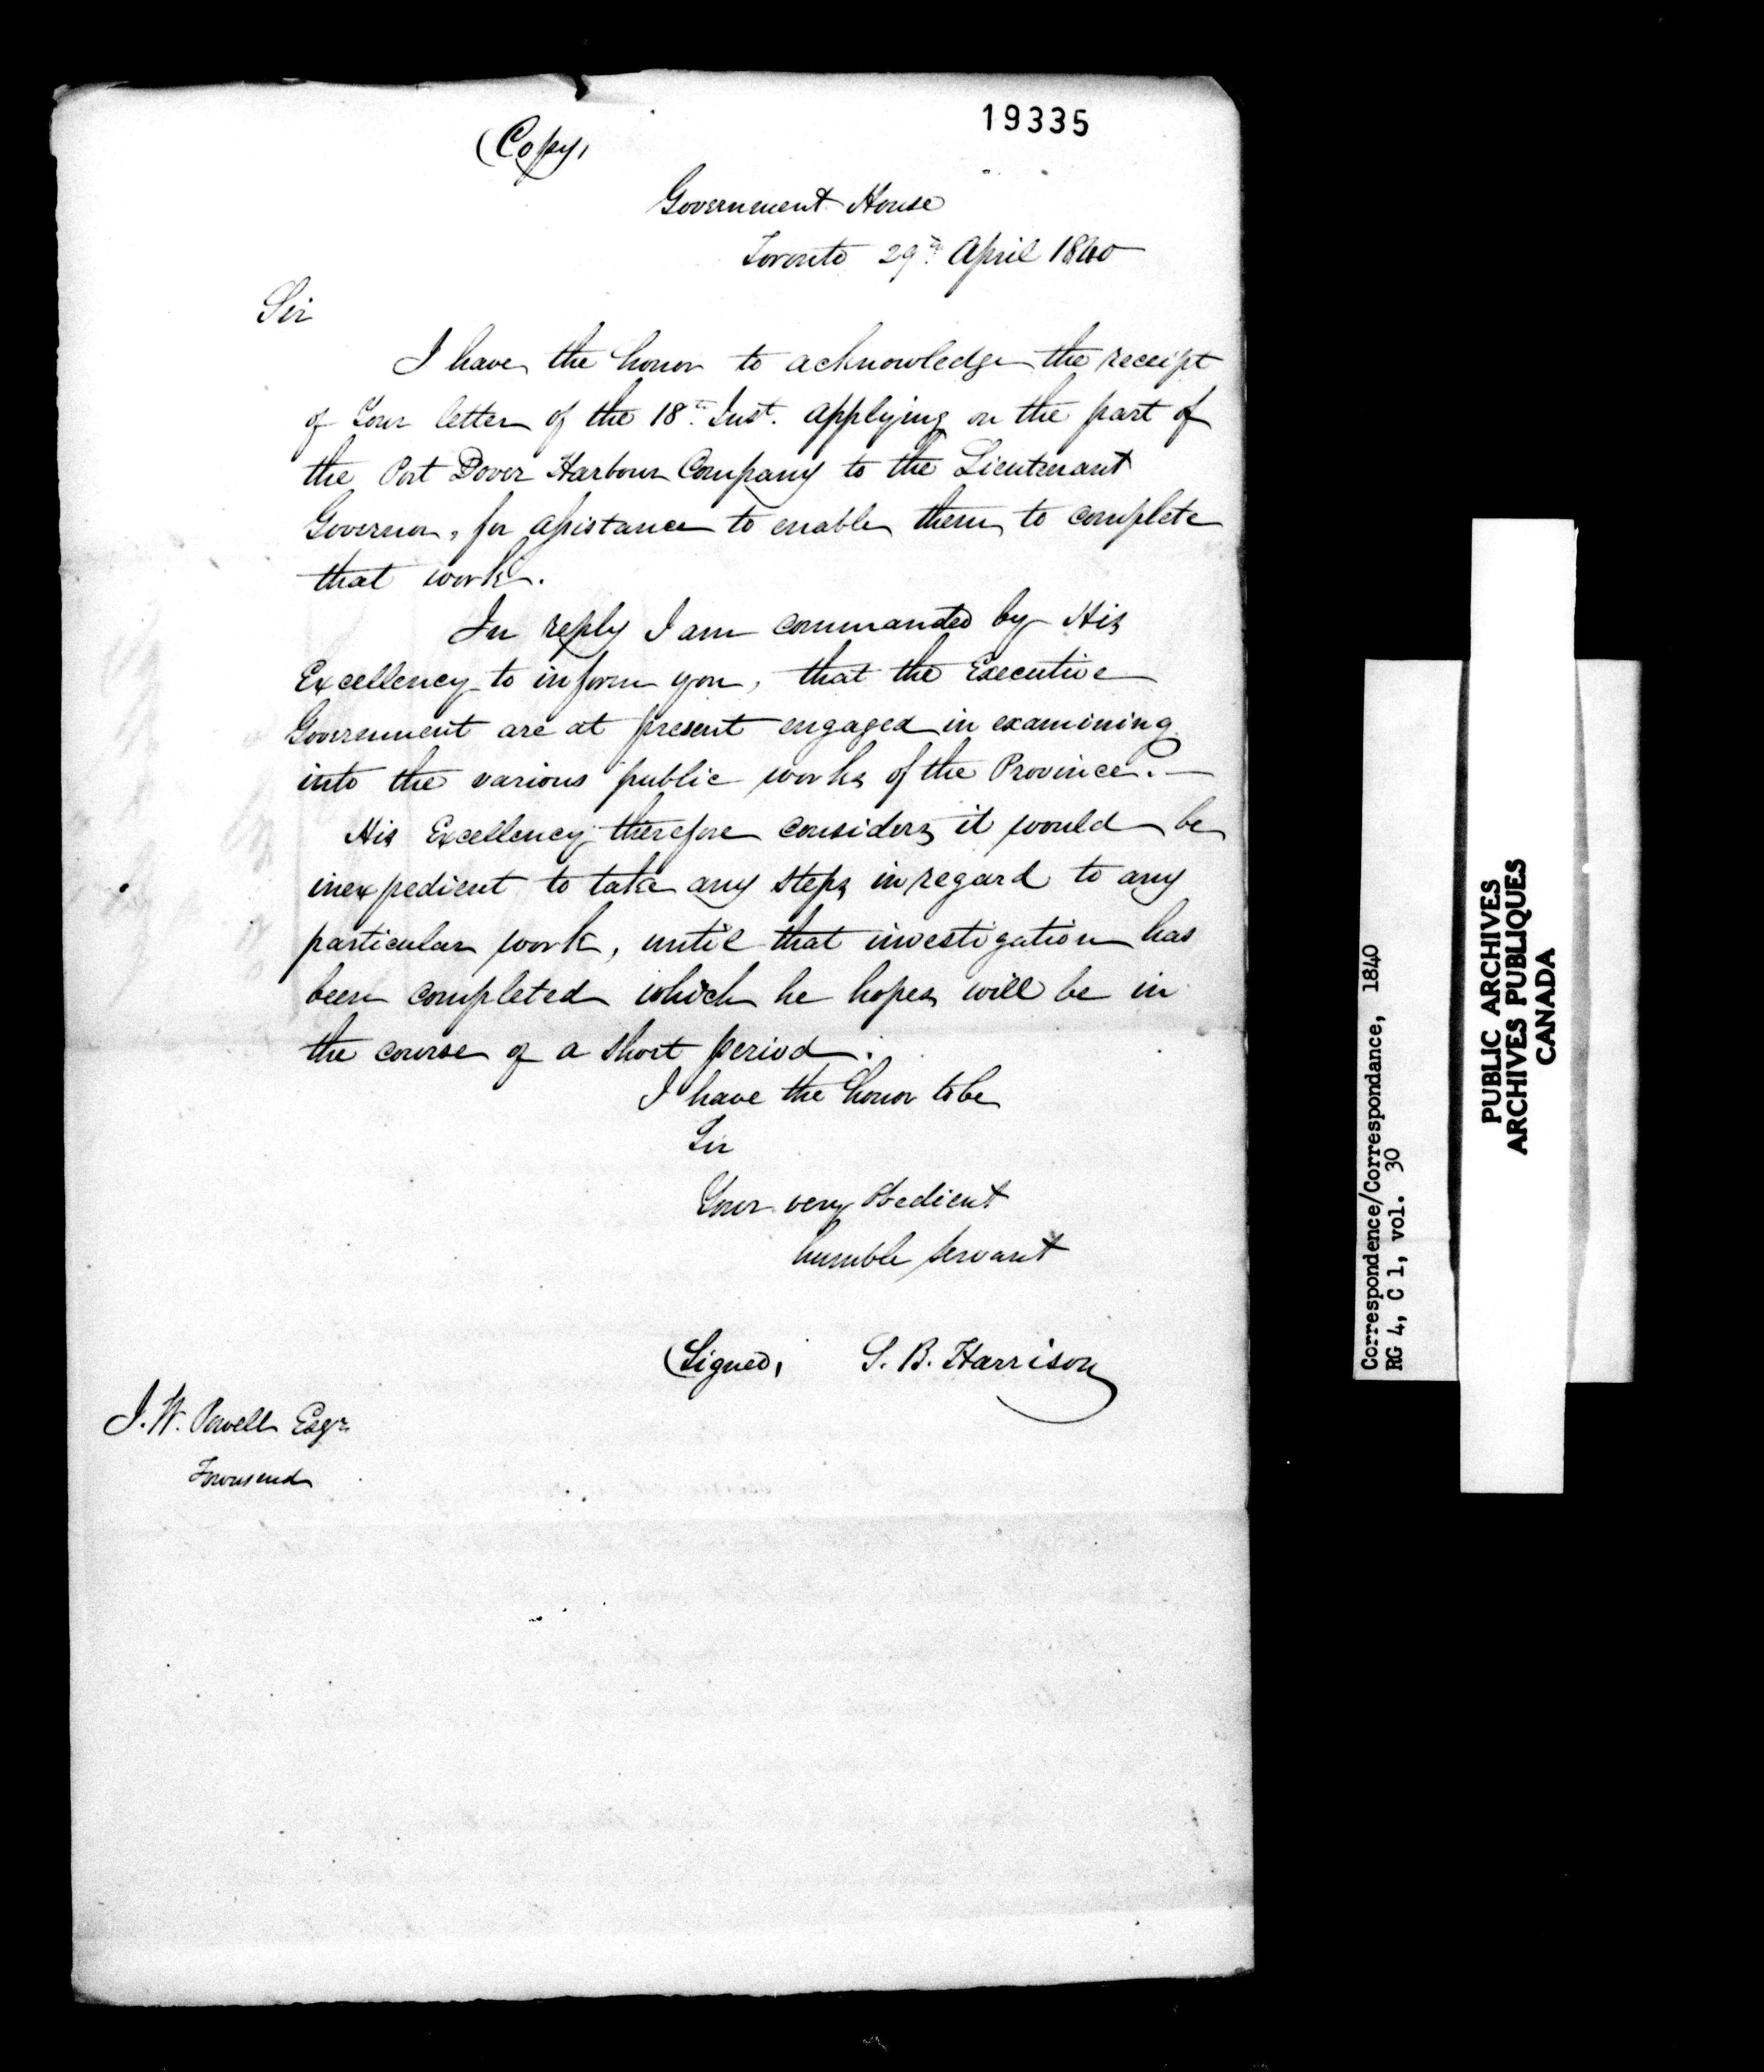 19335
(Copy,
Government House
Toronto 29th April 1840
Sir
I have the honor to acknowledge the receipt
of Your letter of the 18th Inst. applying on the part of
the Port Dover Harbour Company to the Lieutenant
Governor, for assistance to enable them to complete
that work.
In reply I am commanded by His
Excellency to inform you, that the Executive
Government are at present engaged in examining
into the various public works of the Province. —
His Excellency therefore considers it would be
inexpedient to take any steps in regard to any
particular work, until that investigation has
been completed which he hopes will be in
the course of a short period.
I have the honor to be
Sir
Your very obedient
humble servant
(Signed, S. B. Harrison
J. W. Powell Esqr
Townsend
Correspondence/Correspondance, 1840
RG 4, C 1, vol. 30
PUBLIC ARCHIVES
ARCHIVES PUBLIQUES
CANADA